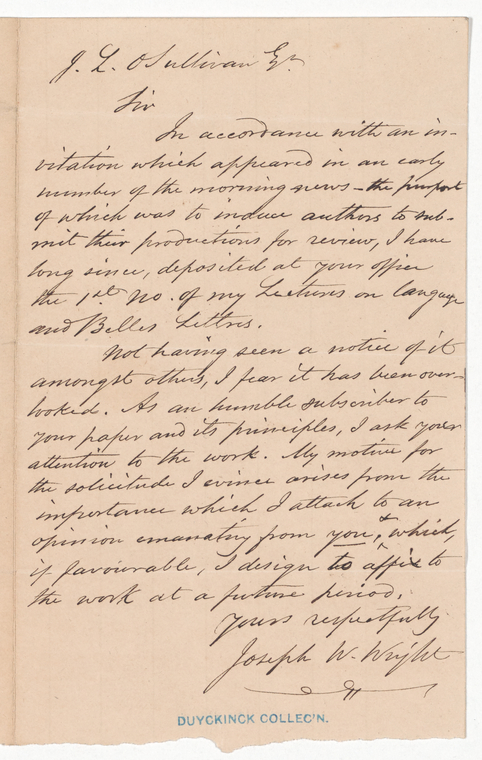 J. L. OSullivan Esqr.
Sir
In accordance with an in-
vitation which appeared in an early
number of the morning news - the purport
of which was to induce authors to sub-
mit their productions for review, I have
long since, deposited at your office
the 1st No. of my Lectures on language
and Belles Lettres.
Not having seen a notice of it
amongst others, I fear it has been over-
looked. As an humble subscriber to
your paper and its principles, I ask your
attention to the work. My motive for
the solicitude I evince arises from the
importance which I attach to an
opinion emanating from you, & which,
if favourable, I design to affix to
the work at a future period.
Yours respectfully
Joseph W. Wright
DUYCKINCK COLLEC'N.